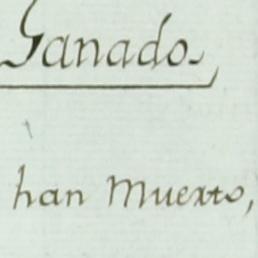 Ganado.
han Muerto,